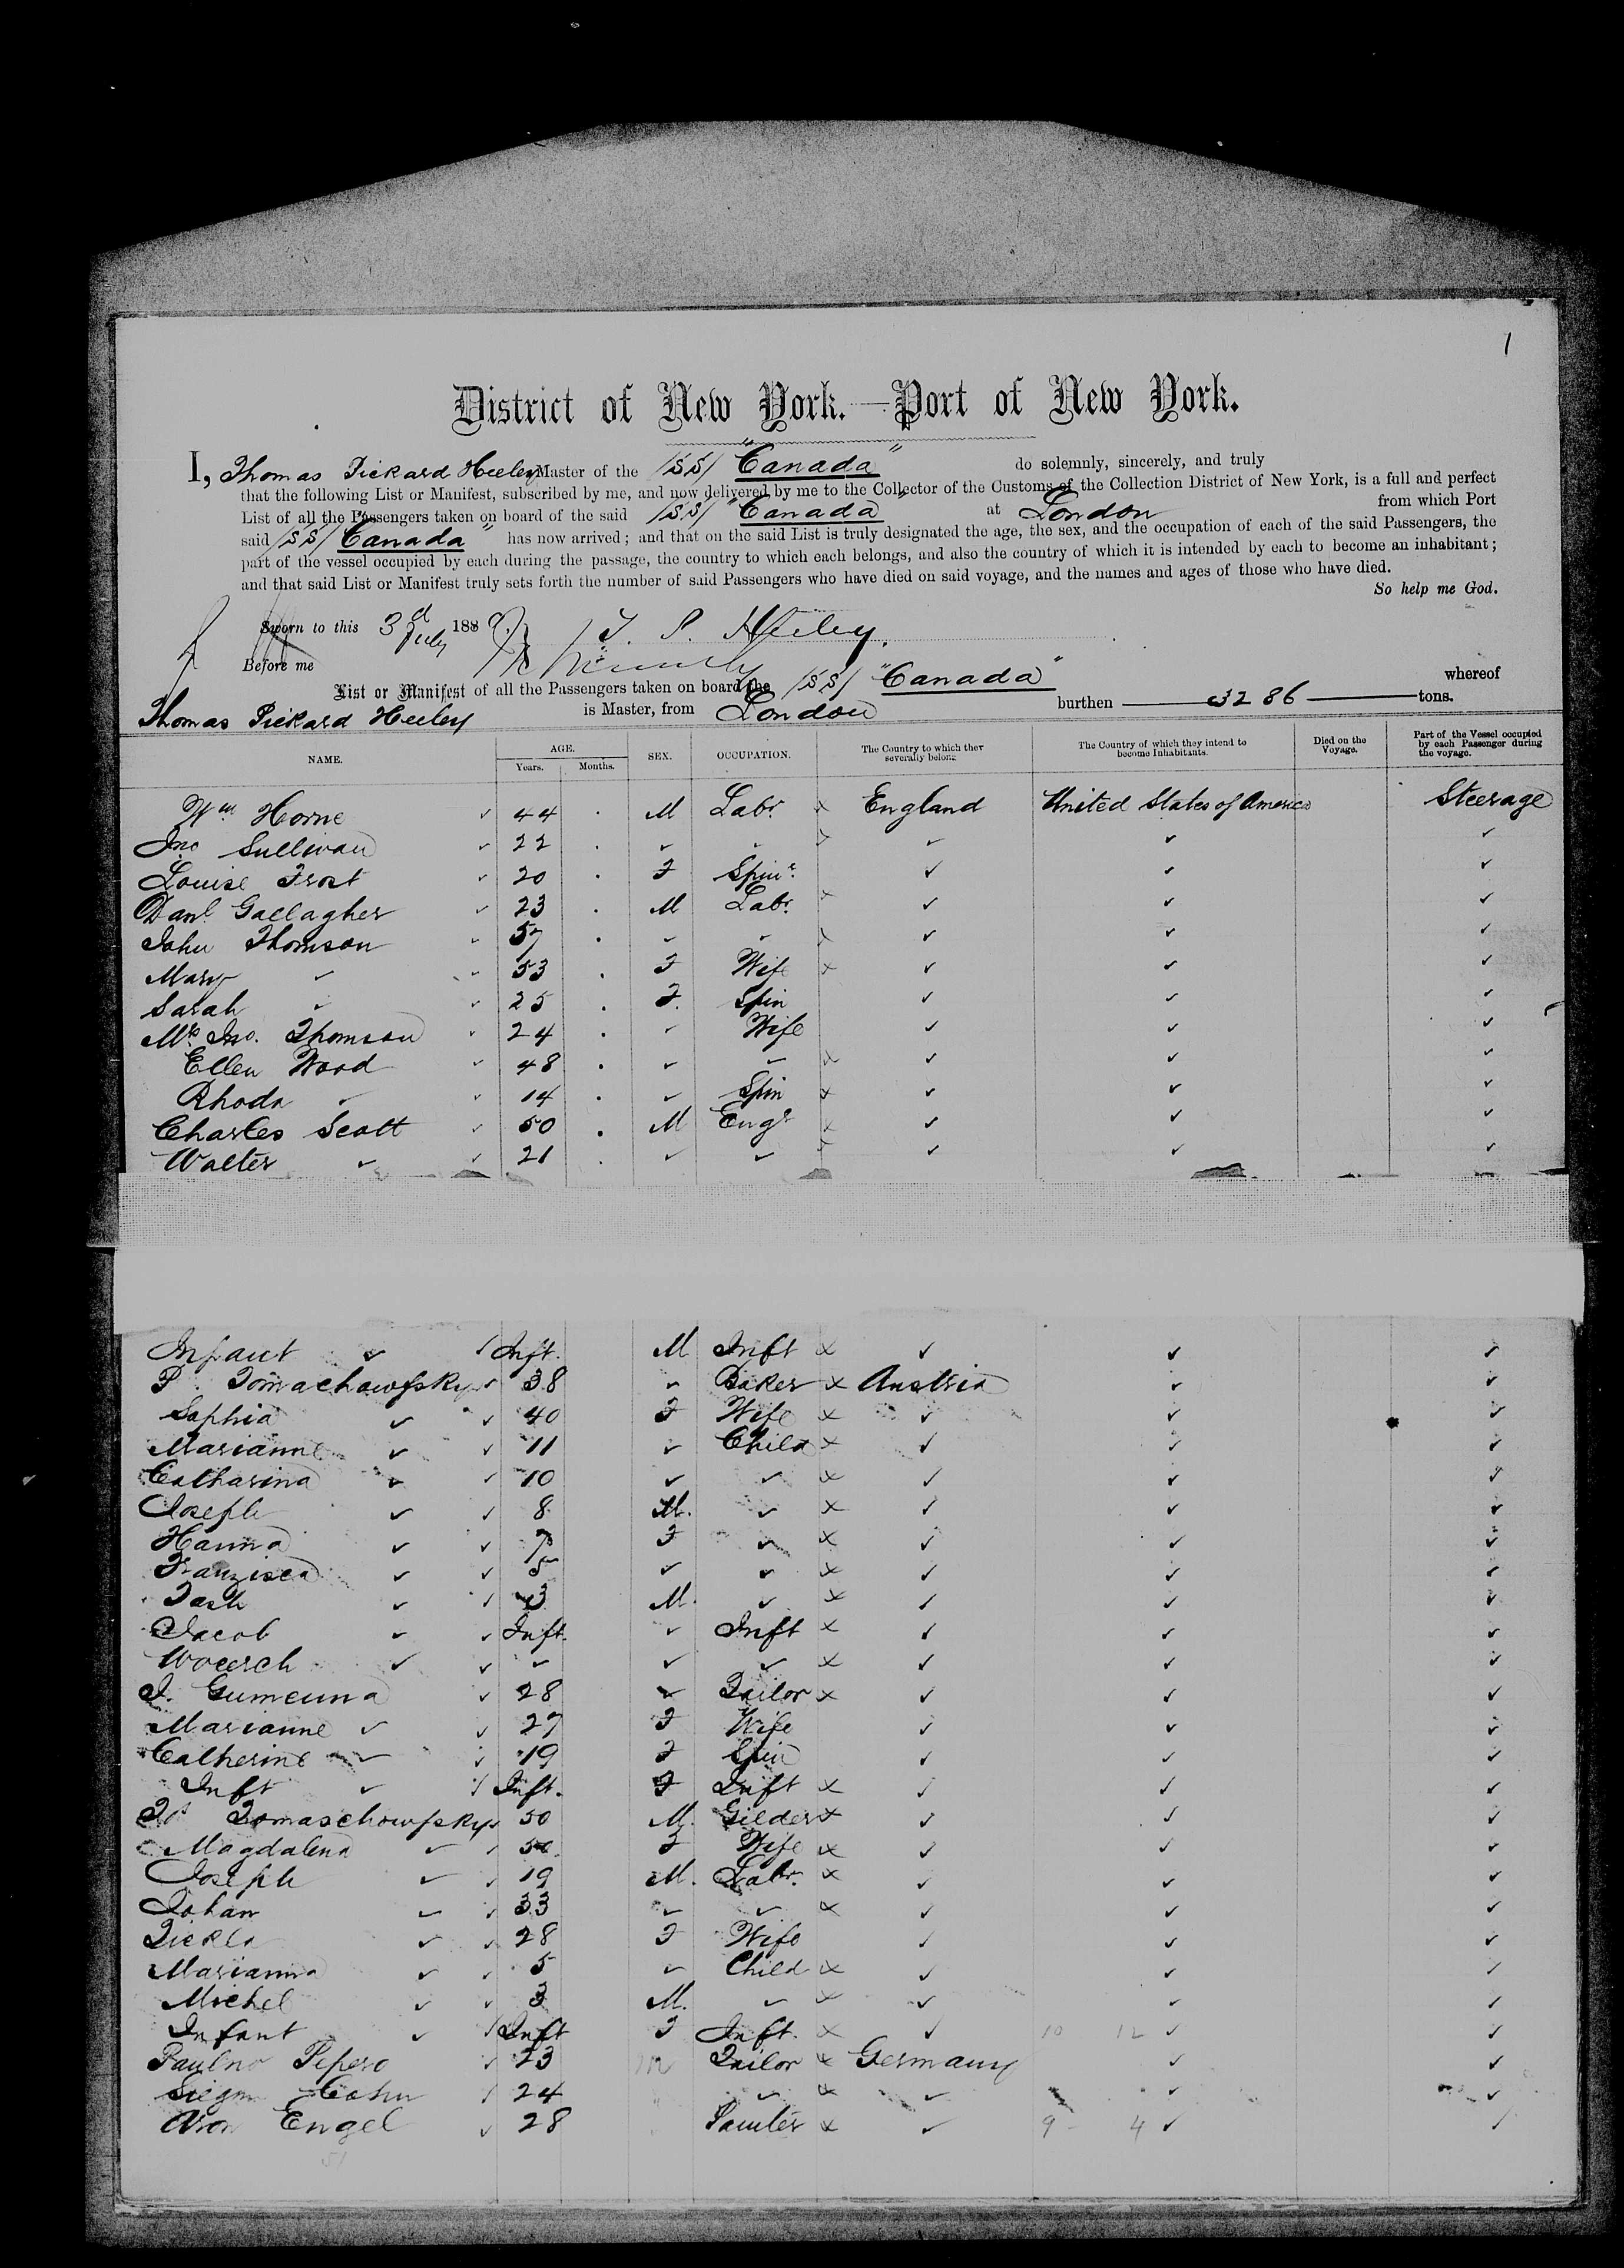 1
District of New York.—Port of New York.
I, Thomas Pickard Heeley Master of the /SS/ "Canada" do solemnly, sincerely, and truly
that the following List or Manifest, subscribed by me, and now delivered by me to the Collector of the Customs of the Collection District of New York, is a full and perfect
List of all the Passengers taken on board of the said /SS/ "Canada" at London from which Port
said /SS/ "Canada" has now arrived; and that on the said List is truly designated the age, the sex, and the occupation of each of the said Passengers, the
part of the vessel occupied by each during the passage, the country to which each belongs, and also the country of which it is intended by each to become an inhabitant;
and that said List or Manifest truly sets forth the number of said Passengers who have died on said voyage, and the names and ages of those who have died.
So help me God.
Sworn to this 3d July 188 T. P. Heeley.
Before me
List or Manifest of all the Passengers taken on board the /SS/ "Canada" whereof
Thomas Pickard Heeley is Master, from London burthen 3286 tons.
NAME. AGE. Years. Months. SEX. OCCUPATION. The Country to which they severally belong. The Country of which they intend to become Inhabitants. Died on the Voyage. Part of the Vessel occupied by each Passenger during the voyage.
Wm Horne ✓ 44 . M Labr. x England United States of America Steerage
Jno Sullivan ✓ 22 . ✓ ✓ ✓ ✓ ✓
Louise Frost ✓ 20 . F Spinr. ✓ ✓ ✓
Danl. Gallagher ✓ 23 . M Labr. x ✓ ✓ ✓
John Thomson ✓ 57 . ✓ ✓ x ✓ ✓ ✓
Mary ✓ ✓ 53 . F Wife x ✓ ✓ ✓
Sarah ✓ ✓ 25 . F. Spin ✓ ✓ ✓
Mrs. Jno. Thomson ✓ 24 . ✓ Wife ✓ ✓ ✓
Ellen Wood ✓ 48 . ✓ ✓ x ✓ ✓ ✓
Rhoda ✓ ✓ 14 . ✓ Spin x ✓ ✓ ✓
Charles Scott ✓ 50 . M Engr x ✓ ✓ ✓
Walter ✓ ✓ 21 . ✓ ✓ ✓ ✓ ✓
Infant ✓ ✓ Inft. M Inft x ✓ ✓ ✓
P. Tomachowfsky ✓ 38 ✓ Baker x Austria ✓ ✓
Sophia ✓ ✓ 40 F Wife x ✓ ✓ ✓
Marianne ✓ ✓ 11 ✓ Child x ✓ ✓ ✓
Catharina ✓ ✓ 10 ✓ ✓ x ✓ ✓ ✓
Joseph ✓ ✓ 8 M. ✓ x ✓ ✓ ✓
Hanna ✓ ✓ 7 F ✓ x ✓ ✓ ✓
Franzisca ✓ ✓ 5 ✓ ✓ x ✓ ✓ ✓
✓ ✓ 3 M. ✓ x ✓ ✓ ✓
Jacob ✓ ✓ Inft. ✓ Inft x ✓ ✓ ✓
✓ ✓ ✓ ✓ ✓ x ✓ ✓ ✓
J. Gumeinna ✓ 28 ✓ Tailor x ✓ ✓ ✓
Marianne ✓ ✓ 27 F Wife ✓ ✓ ✓
Catherine ✓ ✓ 19 F Spin ✓ ✓ ✓
Inft ✓ ✓ Inft. F Inft x ✓ ✓ ✓
Tomaschowfsky ✓ 50 M. Gilder x ✓ ✓ ✓
Magdalena ✓ ✓ F Wife x ✓ ✓ ✓
Joseph ✓ ✓ 19 M. Labr. x ✓ ✓ ✓
Johan ✓ ✓ 33 ✓ ✓ x ✓ ✓ ✓
✓ ✓ 28 F Wife ✓ ✓ ✓
Marianna ✓ ✓ 5 ✓ Child x ✓ ✓ ✓
Michel ✓ ✓ 3 M. ✓ x ✓ ✓ ✓
Infant ✓ ✓ Inft F Inft. x ✓ 10 12 ✓ ✓
✓ 23 M Tailor x Germany ✓ ✓
Siegm Cohn ✓ 24 ✓ x ✓ ✓ ✓
Aron Engel ✓ 28 x ✓ 9 - 4 ✓ ✓